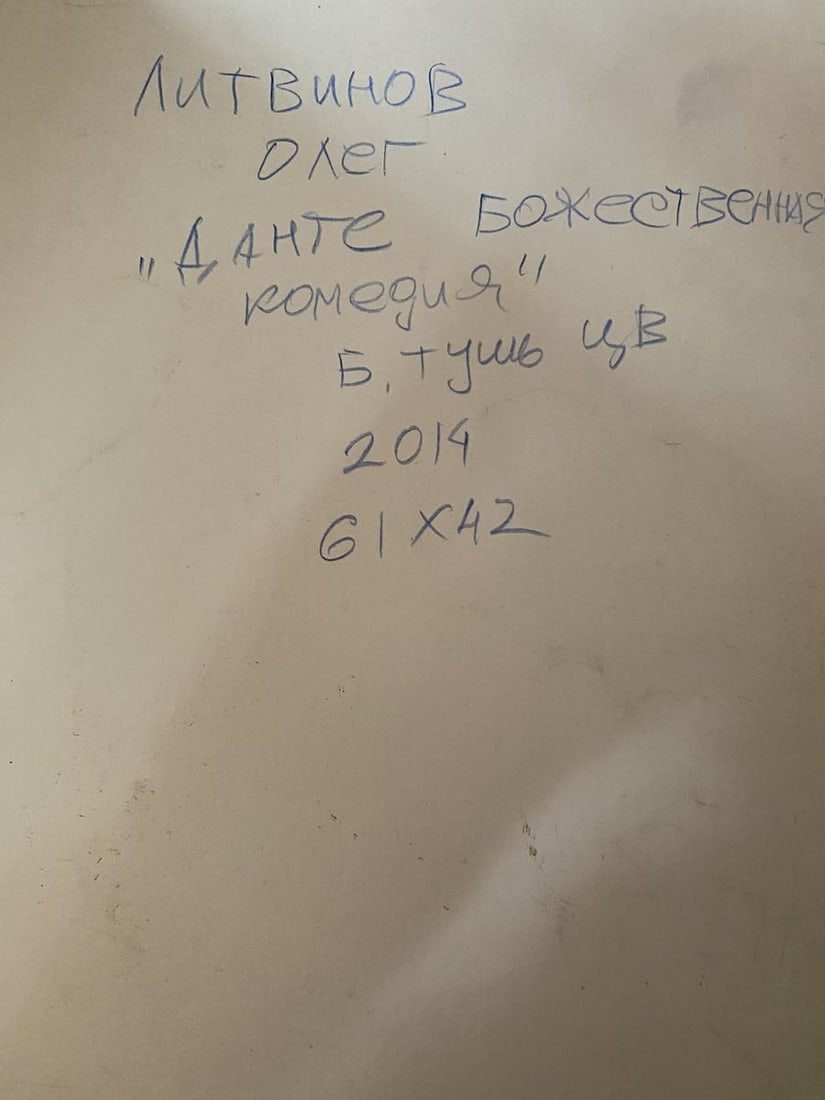 Литвинов
Олег
"Данте Божественная
комедия"
Б, тушь цв
2014
61 х 42